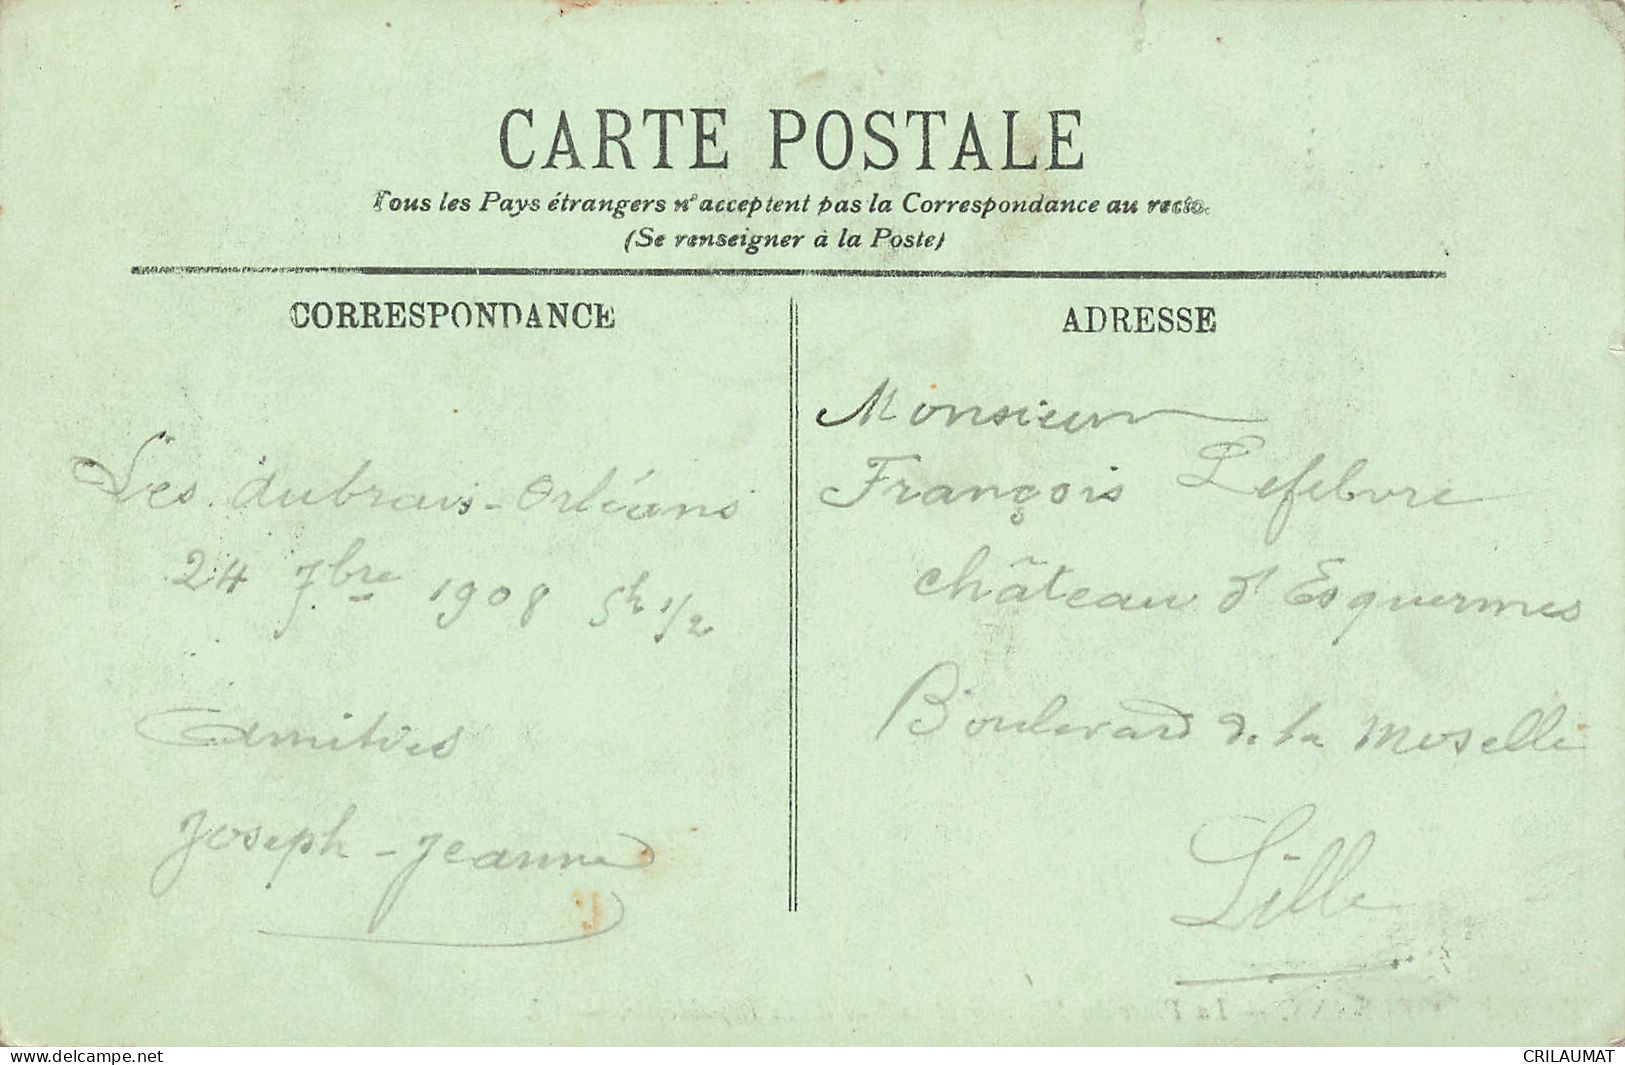 CARTE POSTALE
Tous les Pays étrangers n'acceptent pas la Correspondance au recto.
(Se renseigner à la Poste)
CORRESPONDANCE
Les Aubrais-Orléans
24 7bre 1908 5h 1/2
Amitiés
Joseph-Jeanne
ADRESSE
Monsieur
François Lefebvre
château d'Esquermes
Boulevard de la Moselle
Lille
www.delcampe.net
CRILAUMAT